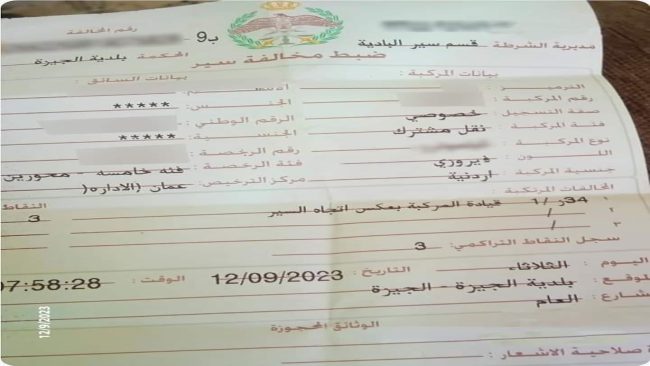 رقم المخالفة
ب9
مديرية الشرطة : قسم سير البادية
المحكمة : بلدية الجيزة
ضبط مخالفة سير
بيانات المركبة :
بيانات السائق :
الترميز :
رقم المركبة :
الجنس : *****
صفة التسجيل : خصوصي
الرقم الوطني :
فئة المركبة : نقل مشترك
الجنسية : *****
نوع المركبة :
رقم الرخصة :
اللون : فيروزي
فئة الرخصة : فئة خامسه - محورين
جنسية المركبة : اردنية
مركز الترخيص : عمان (الاداره(
المخالفات المرتكبة :
النقاط
١ 34ر /1 قيادة المركبة بعكس اتجاه السير
3
٢ /
٣ /
سجل النقاط التراكمي : 3
اليوم : الثلاثاء
التاريخ : 12/09/2023
الوقت : 07:58:28
الموقع : بلدية الجيزة - الجيزة
شارع : العام
الوثائق المحجوزة
صلاحية الاشعار :
12/9/2023